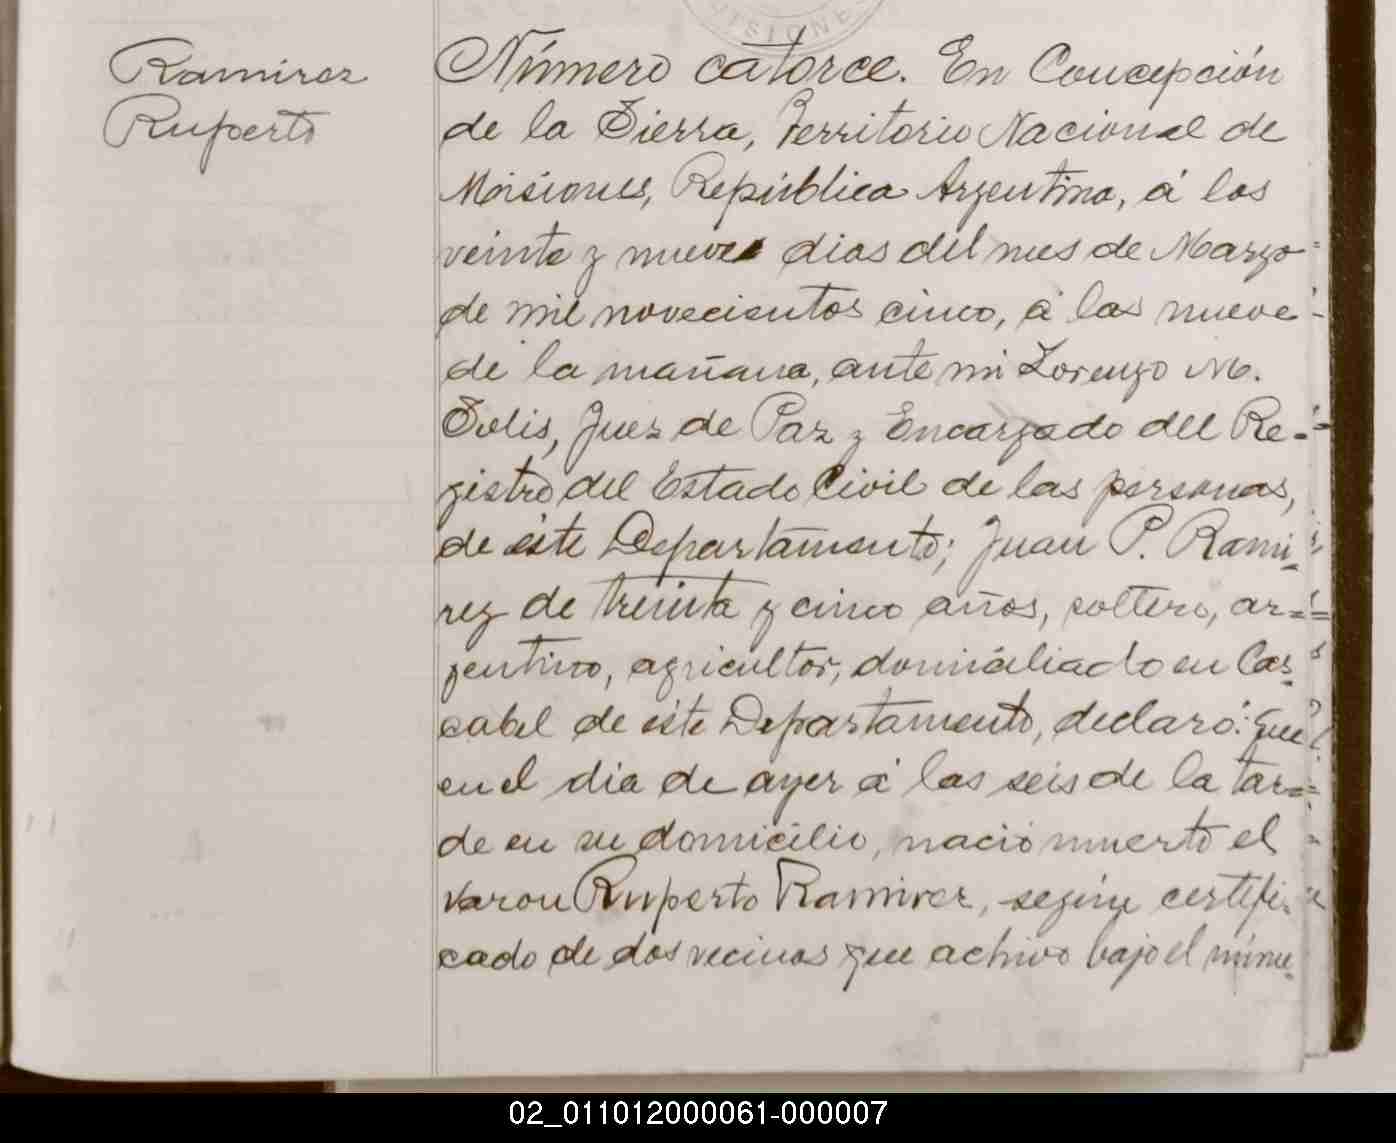 Ramirez
Ruperto
Número catorce. En Concepción
de la Sierra, Territorio Nacional de
Misiones, República Argentina, á los
veinte y nueve dias del mes de Marzo
de mil novecientos cinco, á las nueve
de la mañana, ante mi Lorenzo M.
Solis, Juez de Paz y Encargado del Re-
gistro del Estado Civil de las personas,
de éste Departamento; Juan P. Rami
rez de treinta y cinco años, soltero, ar=
gentino, agricultor, domiciliado en Cas
cabel de éste Departamento, declaró: Que
en el dia de ayer á las seis de la tar=
de en su domicilio, nació muerto el
varon Ruperto Ramirez, según certifi
cado de dos vecinos que achivo bajo el núme
02_011012000061-000007